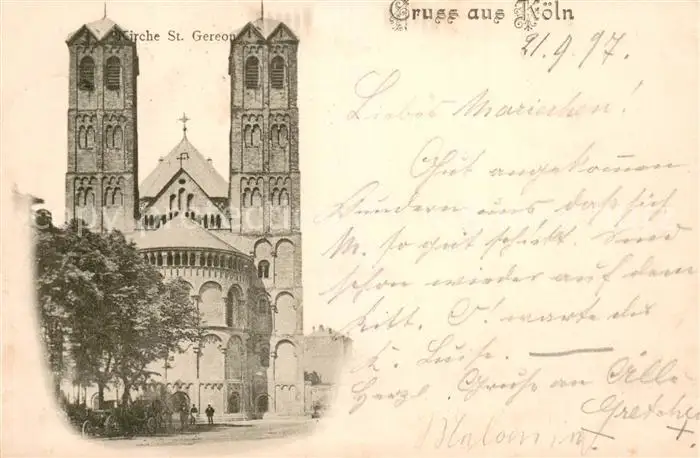 Gruss aus Köln
Kirche St. Gereon
21.9.97.
Liebes Mariechen!
Gut angekommen
wundern uns daß sich
M. so gut schickt. Sind
schon wieder auf dem
warte
Luise.
Herzl. Grüße an Alle
Gretchen